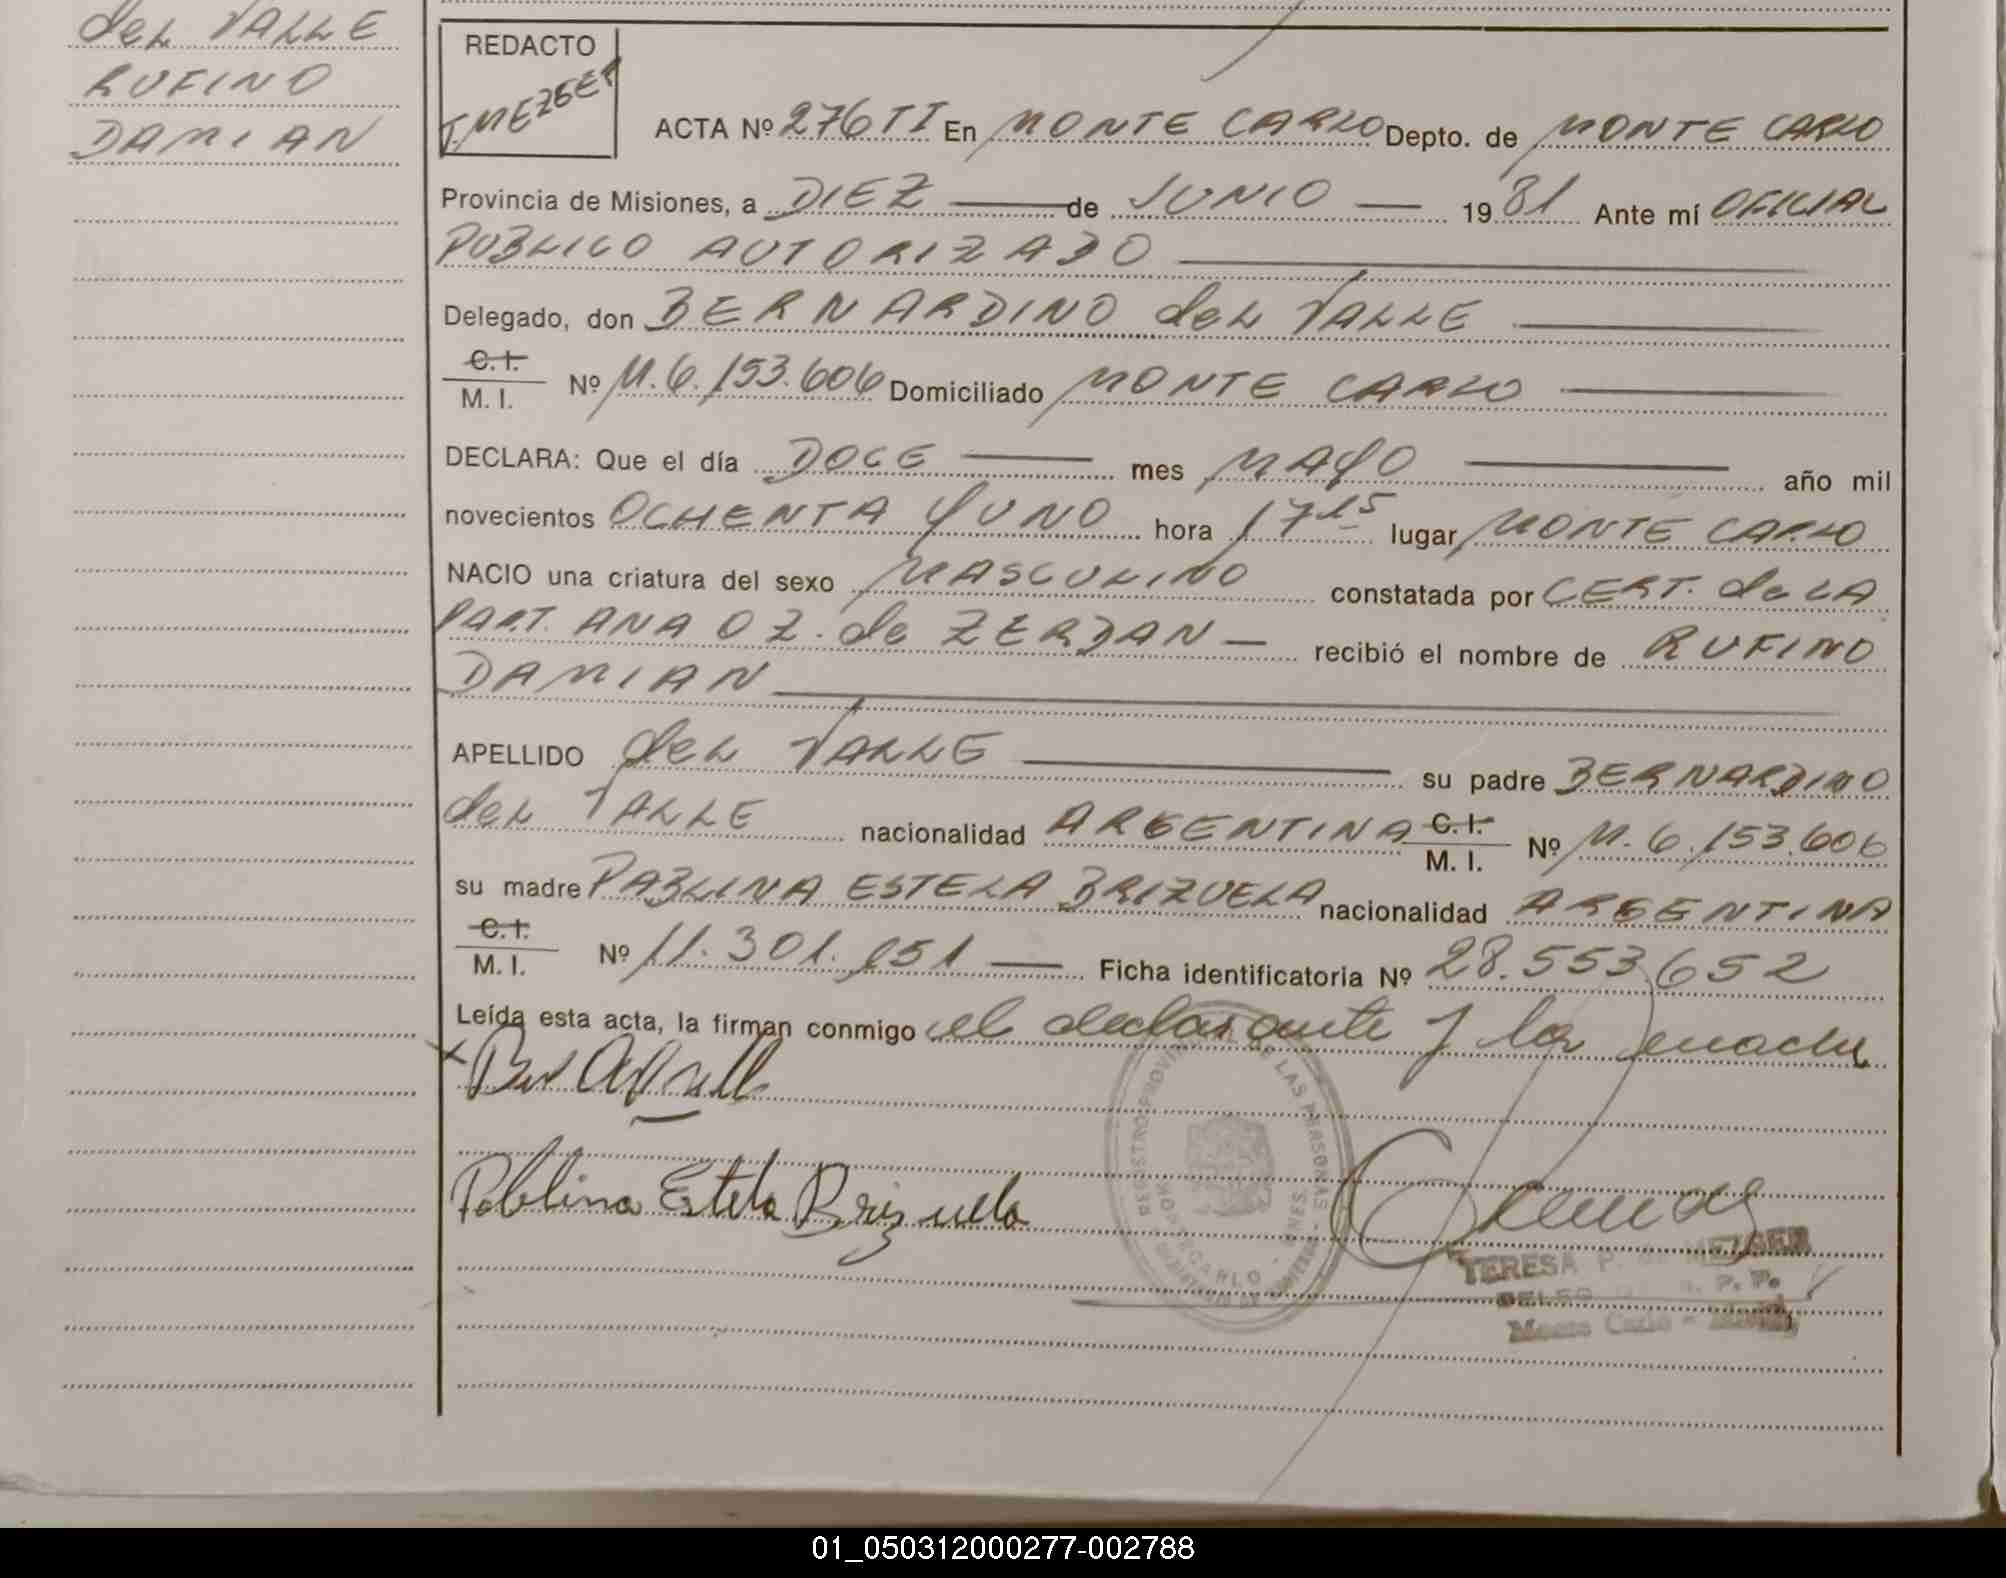 del VALLE
RUFINO
DAMIAN
REDACTO
T. MEZGER
ACTA Nº 276 TI En MONTE CARLO Depto. de MONTE CARLO
Provincia de Misiones, a DIEZ de JUNIO 1981 Ante mí OFICIAL
PUBLICO AUTORIZADO
Delegado, don BERNARDINO del VALLE
C.I.
M. I. Nº M.6.153.606 Domiciliado MONTE CARLO
DECLARA: Que el día DOCE mes MAYO año mil
novecientos OCHENTA YUNO hora 17 15 lugar MONTE CARLO
NACIO una criatura del sexo MASCULINO constatada por CERT. de LA
PART. ANA OZ. de ZERDAN recibió el nombre de RUFINO
DAMIAN
APELLIDO del VALLE su padre BERNARDINO
del VALLE nacionalidad ARGENTINA C.I. M. I. Nº M.6.153.606
su madre PABLINA ESTELA BRIZUELA nacionalidad ARGENTINA
C.I.
M. I. Nº 11.301.051 Ficha identificatoria Nº 28.553.652
Leída esta acta, la firman conmigo el declarante y la madre
Pablina Estela Brizuela
REGISTRO PROVINCIAL DE LAS PERSONAS
MONTECARLO
TERESA P. de MEZGER
R. P. P.
Monte Carlo -
01_050312000277-002788